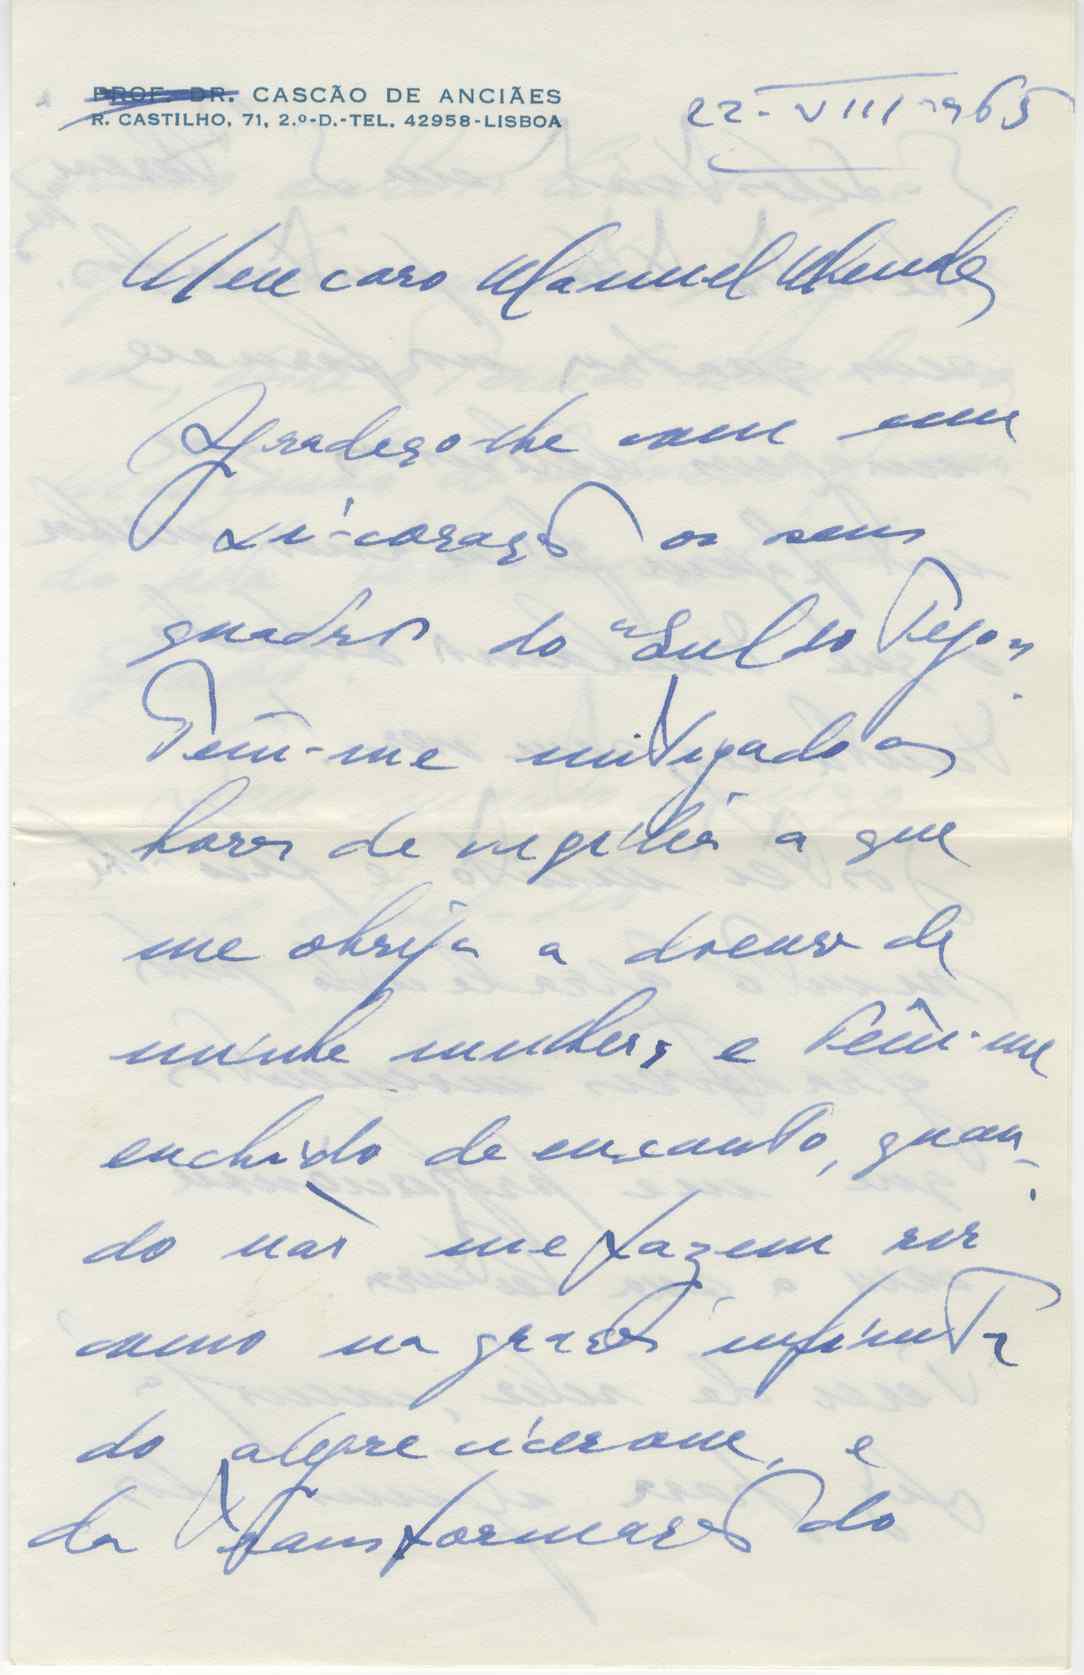 PROF. DR. CASCÃO DE ANCIÃES
R. CASTILHO, 71, 2.º-D.-TEL. 42958-LISBOA
22-VIII-1965
Meu caro Manuel Mendes
Agradeço-lhe com um
xi-coração os seus
quadros do "Sul do Tejo".
Têm-me mitigado as
horas de vigília a que
me obriga a doença de
minha mulher, e têm-me
enchido de encanto, quan-
do não me fazem rir
como na graça infinita
do alegre cicerone, e
da transformação do